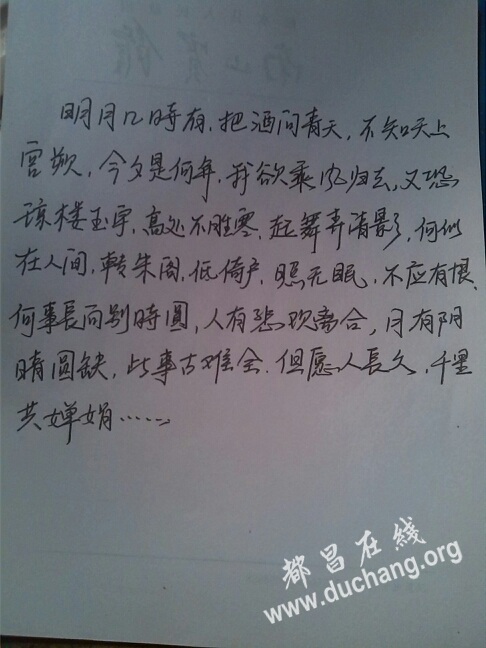 明月几時有，把酒问青天，不知天上
宫阙，今夕是何年，我欲乘风归去，又恐
琼楼玉宇，高处不胜寒，起舞弄清影，何似
在人间，轉朱阁，低倚户，照无眠，不应有恨，
何事長向别時圓，人有悲欢离合，月有阴
晴圆缺，此事古难全，但愿人長久，千里
共婵娟……
都昌在线
www.duchang.org